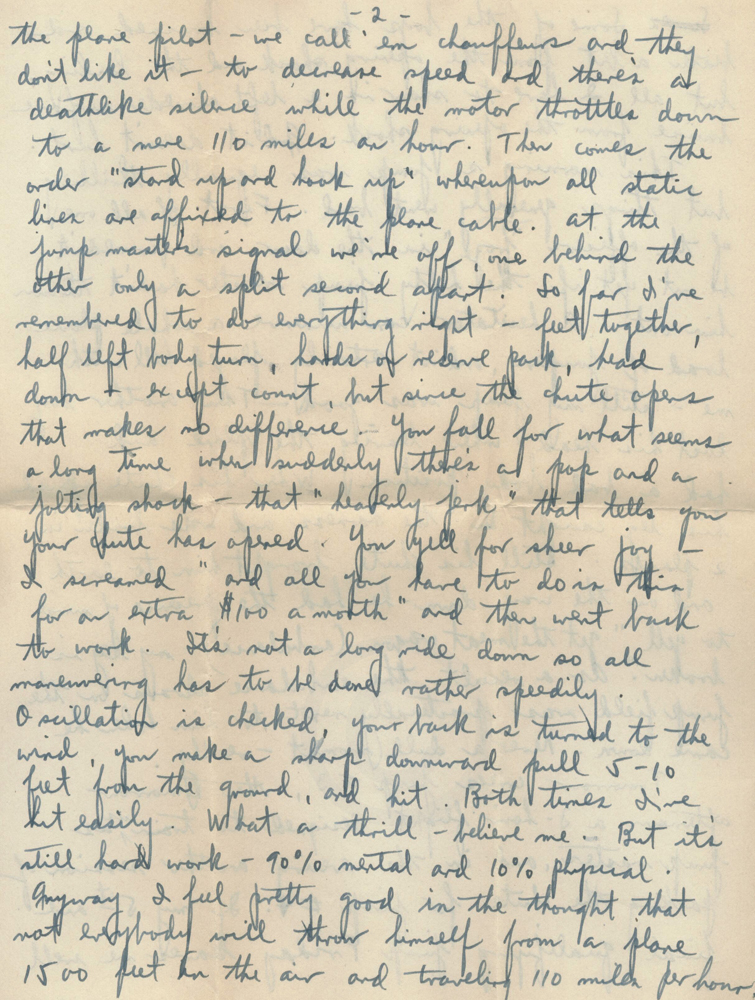 - 2 -
the plane pilot - we call 'em chauffeurs and they
don't like it - to decrease speed and there's a
deathlike silence while the motor throttles down
to a mere 110 miles an hour. Then comes the
order "stand up and hook up" whereupon all static
lines are affixed to the plane cable. At the
jump masters signal we're off, one behind the
other only a split second apart. So far I've
remembered to do everything right - feet together,
half left body turn, hands on reserve pack, head
down + except count, but since the chute opens
that makes no difference. You fall for what seems
a long time when suddenly there's a pop and a
jolting shock - that "heavenly jerk" that tells you
your chute has opened. You yell for sheer joy -
I screamed "and all you have to do is this
for an extra $100 a month" and then went back
to work. It's not a long ride down so all
maneuvering has to be done rather speedily.
Oscillation is checked, your back is turned to the
wind, you make a sharp downward pull 5-10
feet from the ground, and hit. Both times I've
hit easily. What a thrill - believe me. But it's
still hard work - 90% mental and 10% physical.
Anyway I feel pretty good in the thought that
not everybody will throw himself from a plane
1500 feet in the air and traveling 110 miles per hour.